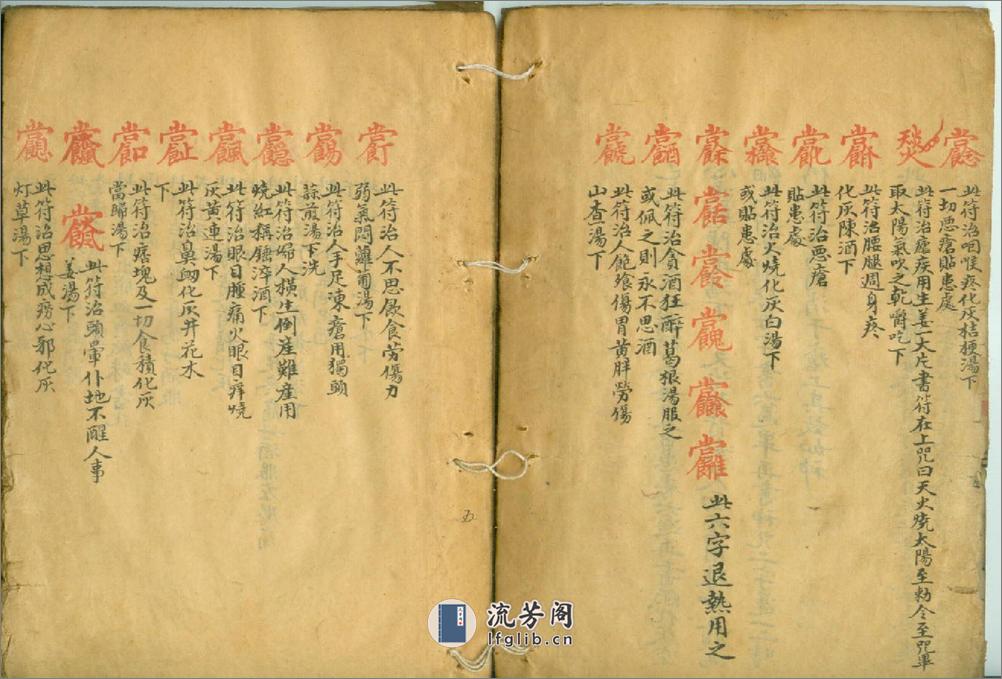 此符治咽喉疼化灰桔梗湯下
一切惡瘡貼患處
此符治瘧疾用生姜一大片書符在上咒曰天火燒太陽至勅令至咒畢
取太陽氣吹之乾嚼吃下
此符治腰腿週身疼
化灰陳酒下
此符治惡瘡
貼患處
此符治火燒化灰白湯下
或貼患處
此六字退熱用之
此符治貪酒狂醉葛根湯服之
或佩之則永不思酒
此符治人飽飱傷胃黄胖勞傷
山查湯下
此符治人不思飲食勞傷力
弱氣悶蘿蔔湯下
此符治人手足凍瘡用獨頭
蒜煎湯下洗
此符治婦人橫生倒產難產用
燒紅秤錘淬酒下
此符治眼目腫痛火眼目痒燒
灰黄連湯下
此符治鼻衄化灰井花水
下
此符治痞塊及一切食積化灰
當歸湯下
此符治頭暈仆地不醒人事
姜湯下
此符治思想成痨心邪化灰
灯草湯下
五
流芳阁
lfglib.cn